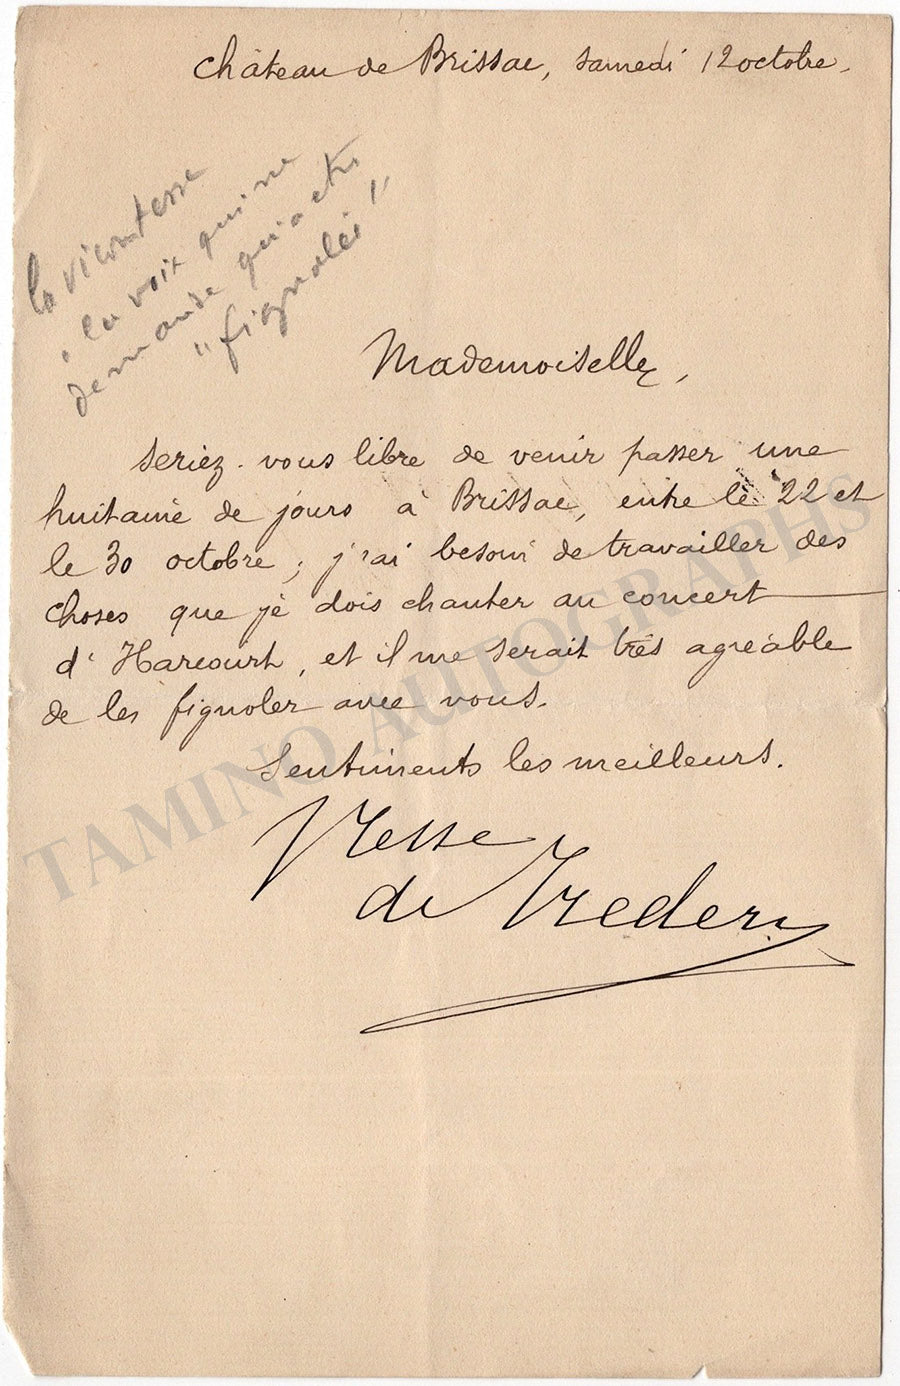 Château de Brissac, samedi 12 octobre.
la vicomtesse
"la voix qui ne
demande qu'à être
"fignolée"
Mademoiselle,
seriez-vous libre de venir passer une
huitaine de jours à Brissac, entre le 22 et
le 30 octobre ; j'ai besoin de travailler des
choses que je dois chanter au concert
d'Harcourt, et il me serait très agréable
de les fignoler avec vous.
Sentiments les meilleurs.
Vtesse
de Trédern
TAMINO AUTOGRAPHS